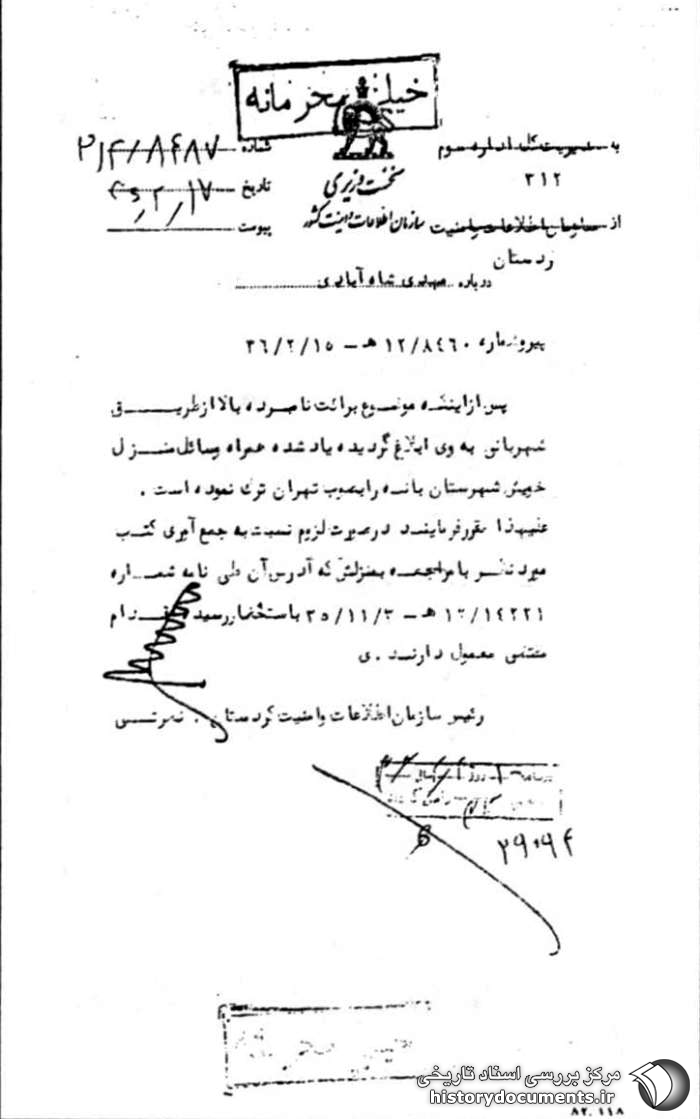 خیلی محرمانه
به مدیریت کل اداره سوم
شماره ۳۱۲/۸۴۸۷
۳۱۲
نخست وزیری
تاریخ ۳۶/۲/۱۷
از سازمان اطلاعات و امنیت
سازمان اطلاعات و امنیت کشور
پیوست
ردستان
درباره مهدی شاه آبادی
پیرو شماره ۱۲/۸٤٦۰ هـ - ۳٦/۲/۱٥
پس از اینکه موضوع برائت نامبرده بالا از طریق
شهربانی به وی ابلاغ گردیده یاد شده همراه وسائل منزل
خویش شهرستان بانه را بصوب تهران ترک نموده است .
علیهذا مقرر فرمایند در صورت لزوم نسبت به جمع آوری کتب
مورد نظر با مراجعه بمنزلش که آدرس آن طی نامه شماره
۱۲/۱٤۲۲۱ هـ - ۳٥/۱۱/۳ باستحضار رسیده اقدام
مقتضی معمول دارند . ی
رئیس سازمان اطلاعات و امنیت کردستان .
روز
۲۹۰۹۴
مرکز بررسی اسناد تاریخی
historydocuments.ir
۸۲.۱۱۸